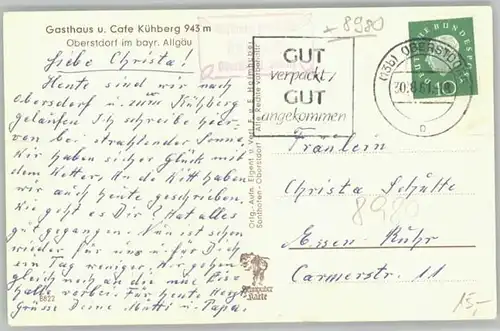 Gasthaus u. Cafe Kühberg 943 m
Oberstdorf im bayr. Allgäu
Liebe Christa!
Heute sind wir nach
Obersdorf u. zum Kühberg
gelaufen. Ich schreibe hier
von bei strahlender Sonne.
Wir haben sicher Glück mit
dem Wetter. An die
wir auch heute geschrieben.
Wie geht es Dir? Hat alles
gut gegangen. Nun ist schon
wieder für uns u. für Dich
ein Tag weniger. Wir gehen
gleich noch an die
halle vorbei. Für heute Herzl.
Grüsse Deine Mutti u. Papa.
8822
Orig.-Aufn. Eigent. u. Verl. F. u. E. Heimhuber
Sonthofen-Oberstdorf Alle Rechte vorbehalten
8980
GUT
verpackt,
GUT
angekommen
(13b) OBERSTDORF
30.8.61
b
DEUTSCHE BUNDESPOST
10
Fräulein
Christa Schulte
8980
Essen-Ruhr
Carmerstr. 11
Karte
15,-